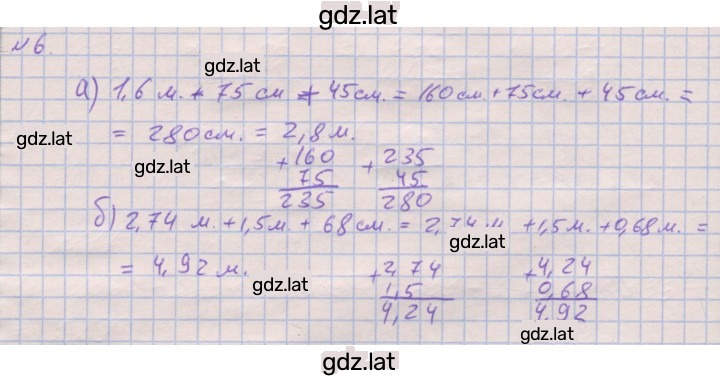 gdz.lat
№6.
gdz.lat
а) 1,6 м. + 75 см + 45 см. = 160 см. + 75 см. + 45 см. =
gdz.lat
gdz.lat
= 280 см. = 2,8 м.
gdz.lat
gdz.lat
+160 +235
75 45
235 280
б) 2,74 м. + 1,5 м. + 68 см. = 2,74 м. + 1,5 м. + 0,68 м. =
gdz.lat
= 4,92 м.
gdz.lat
+2,74 +4,24
1,5 0,68
4,24 4.92
gdz.lat
gdz.lat